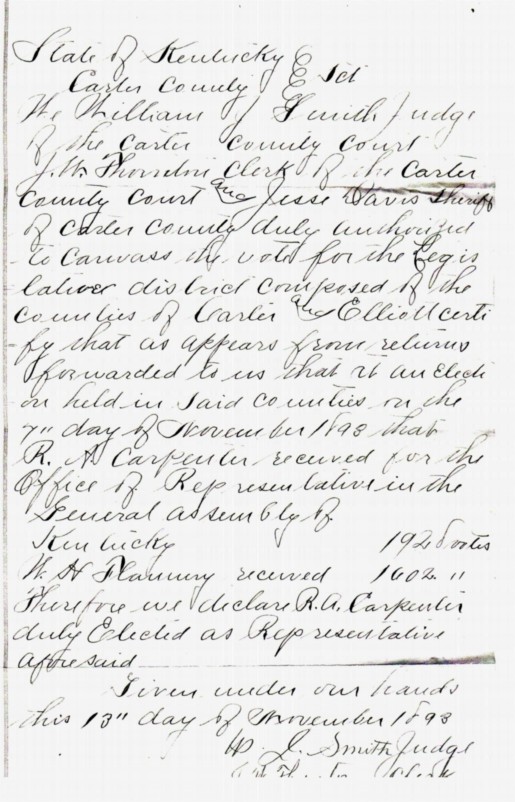 State of Kentucky
Carter County } Sct
We William J Smith Judge
of the Carter County Court
J.W. Thornton Clerk of the Carter
County Court and Jesse Davis Sheriff
of Carter County duly authorized
to canvass the vote for the Legis
lative district composed of the
counties of Carter and Elliott certi
fy that as appears from returns
forwarded to us that at an electi
on held in said counties on the
7" day of November 1893 that
R. A. Carpenter received for the
Office of Representative in the
General assembly of
Kentucky votes
W. H Flannery received 1602 "
Therefore we declare R.A. Carpenter
duly Elected as Representative
aforesaid
Given under our hands
this 13" day of November 1893
W. J. Smith Judge